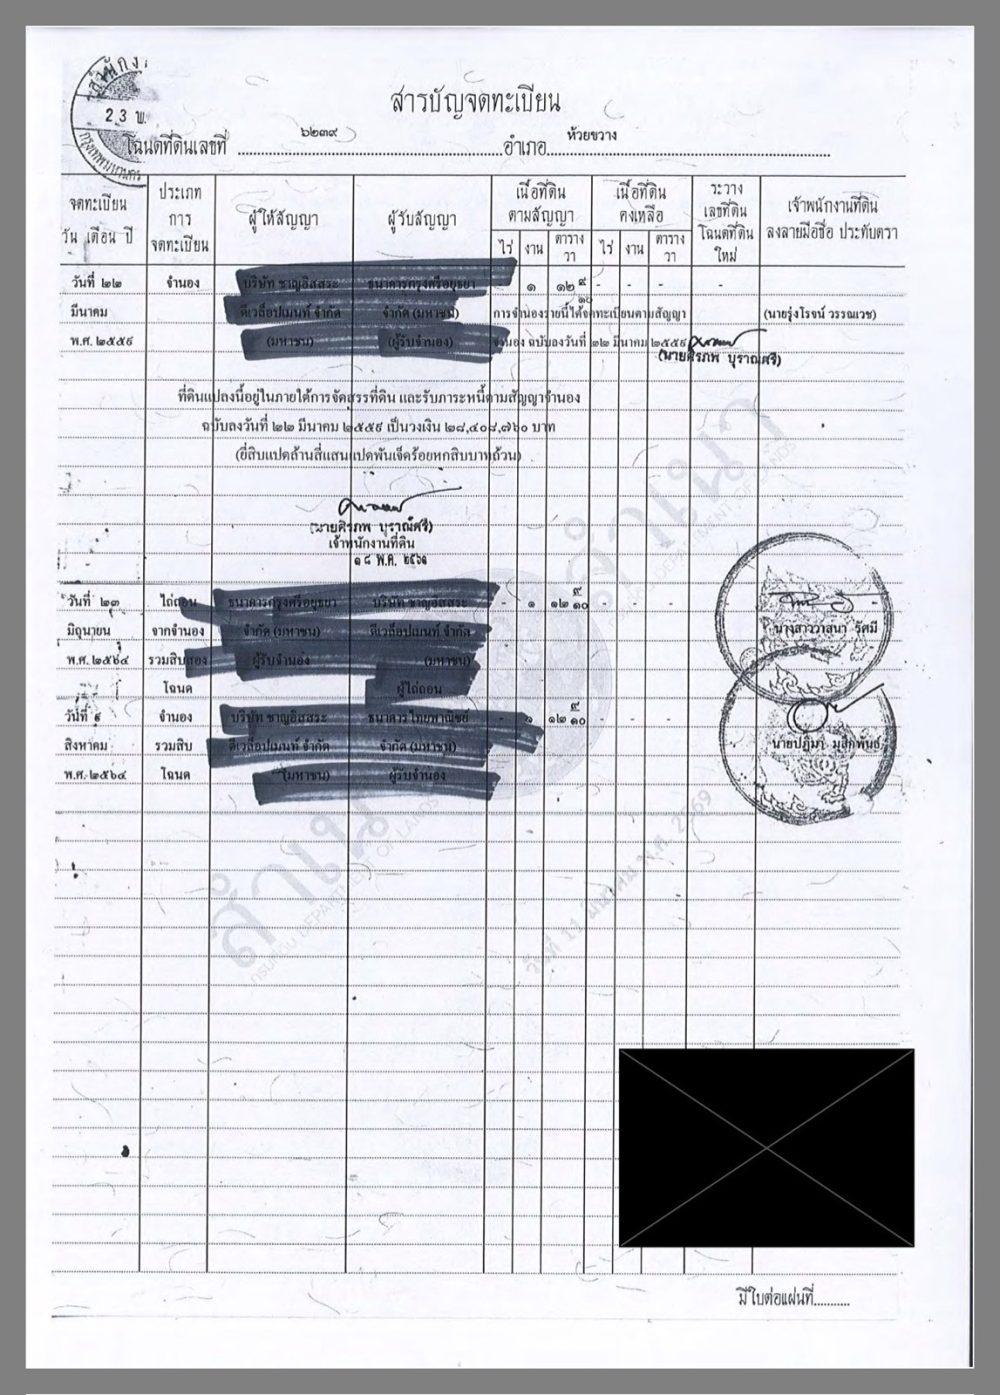 สำนักง
23 พ.
กรุงเทพมหานคร
สารบัญจดทะเบียน
โฉนดที่ดินเลขที่ ๖๒๓๙ อำเภอ ห้วยขวาง
จดทะเบียน วัน เดือน ปี
ประเภทการจดทะเบียน
ผู้ให้สัญญา
ผู้รับสัญญา
เนื้อที่ดินตามสัญญา
ไร่ งาน ตารางวา
เนื้อที่ดินคงเหลือ
ไร่ งาน ตารางวา
ระวาง เลขที่ดิน โฉนดที่ดินใหม่
เจ้าพนักงานที่ดิน ลงลายมือชื่อ ประทับตรา
วันที่ ๒๒ จำนอง บริษัท ชาญอิสสระ ธนาคารกรุงศรีอยุธยา - ๑ ๑๒ ๙/๑๐ - - - -
มีนาคม ดีเวล็อปเมนท์ จำกัด จำกัด (มหาชน) การจำนองรายนี้ได้จดทะเบียนตามสัญญา (นายรุ่งโรจน์ วรรณเวช)
พ.ศ. ๒๕๕๙ (มหาชน) (ผู้รับจำนอง) จำนอง ฉบับลงวันที่ ๒๒ มีนาคม ๒๕๕๙
(นายศิรภพ บุราณศรี)
ที่ดินแปลงนี้อยู่ในภายใต้การจัดสรรที่ดิน และรับภาระหนี้ตามสัญญาจำนอง
ฉบับลงวันที่ ๒๒ มีนาคม ๒๕๕๙ เป็นวงเงิน ๒๘,๔๐๘,๗๖๐ บาท
(ยี่สิบแปดล้านสี่แสนแปดพันเจ็ดร้อยหกสิบบาทถ้วน)
(นายศิรภพ บุราณศรี)
เจ้าพนักงานที่ดิน
๑๘ พ.ค. ๒๕๖๑
วันที่ ๒๓ ไถ่ถอน ธนาคารกรุงศรีอยุธยา บริษัท ชาญอิสสระ - ๑ ๑๒ ๙/๑๐ - - - -
มิถุนายน จากจำนอง จำกัด (มหาชน) ดีเวล็อปเมนท์ จำกัด นางสาววาสนา รัศมี
พ.ศ. ๒๕๖๔ รวมสิบสอง ผู้รับจำนอง (มหาชน)
โฉนด ผู้ไถ่ถอน
วันที่ ๙ จำนอง บริษัท ชาญอิสสระ ธนาคารไทยพาณิชย์ - ๑ ๑๒ ๙/๑๐ - - - -
สิงหาคม รวมสิบ ดีเวล็อปเมนท์ จำกัด จำกัด (มหาชน) นายปฏิมา มุสิกพันธ์
พ.ศ. ๒๕๖๔ โฉนด (มหาชน) ผู้รับจำนอง
สำเนา
กรมที่ดิน DEPARTMENT OF LANDS
วันที่ 11 มีนาคม พ.ศ. 2569
มีใบต่อแผ่นที่..........